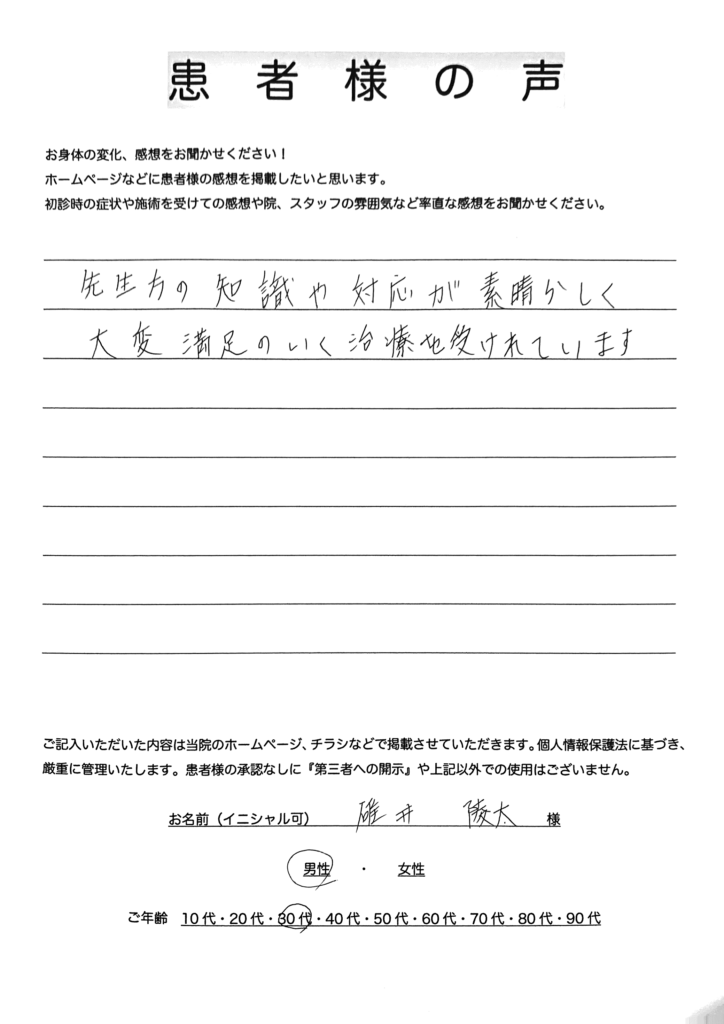 患者様の声
お身体の変化、感想をお聞かせください！
ホームページなどに患者様の感想を掲載したいと思います。
初診時の症状や施術を受けての感想や院、スタッフの雰囲気など率直な感想をお聞かせください。
先生方の知識や対応が素晴らしく
大変満足のいく治療を受けれています
ご記入いただいた内容は当院のホームページ、チラシなどで掲載させていただきます。個人情報保護法に基づき、
厳重に管理いたします。患者様の承認なしに『第三者への開示』や上記以外での使用はございません。
お名前（イニシャル可） 碓井 陵太 様
男性 ・ 女性
ご年齢 10代・20代・30代・40代・50代・60代・70代・80代・90代